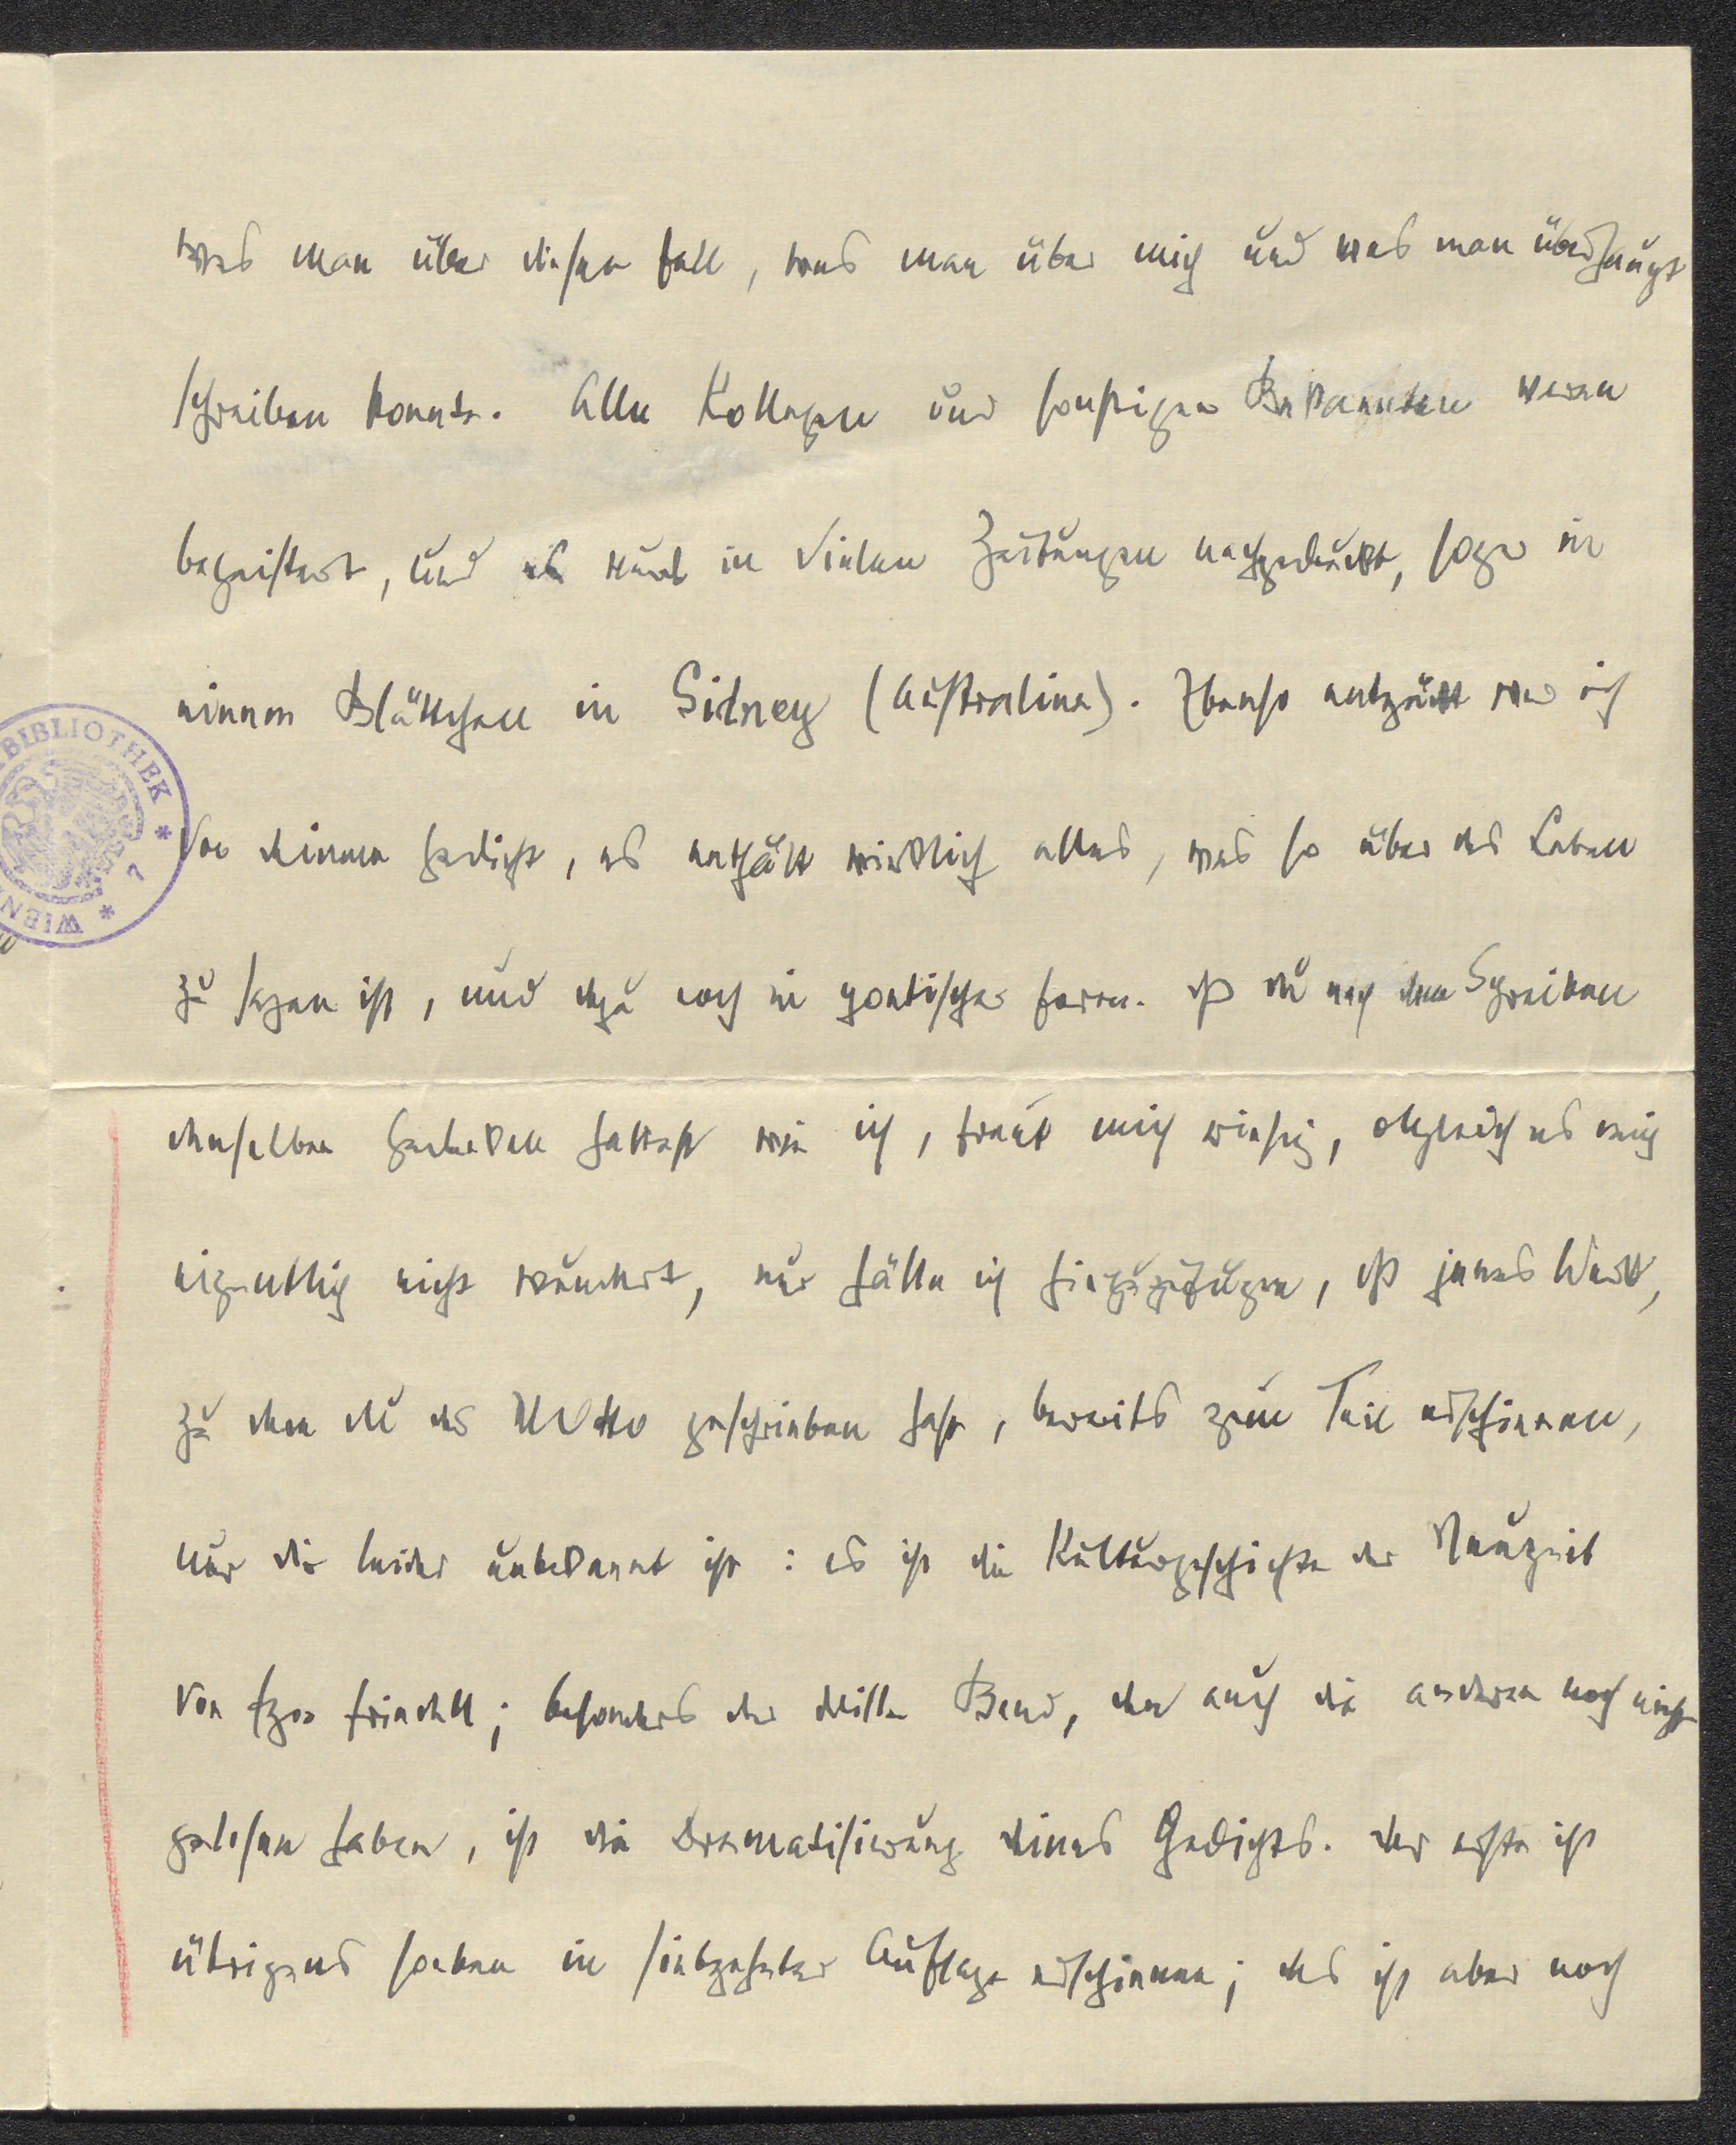 was man über diesen Fall, was man über mich und was man überhaupt
schreiben konnte. Alle Kollegen und sonstigen Bekannten waren
begeistert, und es wurde in vielen Zeitungen nachgedruckt, sogar in
einem Blättchen in Sidney (Australien). Ebenso entzückt war ich
von deinem Gedicht, es enthält wirklich alles, was so über das Leben
zu sagen ist, und dazu noch in poetischer Form. Daß du nach dem Schreiben
denselben Gedanken hattest wie ich, freut mich riesig, obgleich es mich
eigentlich nicht wundert, nur hätte ich hinzuzufügen, daß jenes Werk,
zu dem du das Motto geschrieben hast, bereits zum Teil erschienen,
nur dir leider unbekannt ist: es ist die Kulturgeschichte der Neuzeit
von Egon Friedell; besonders der dritte Band, den auch die anderen noch nicht
gelesen haben, ist die Dramatisierung deines Gedichts. Der erste ist
übrigens soeben in siebzehnter Auflage erschienen; das ist aber noch
BIBLIOTHEK * 7 * WIEN